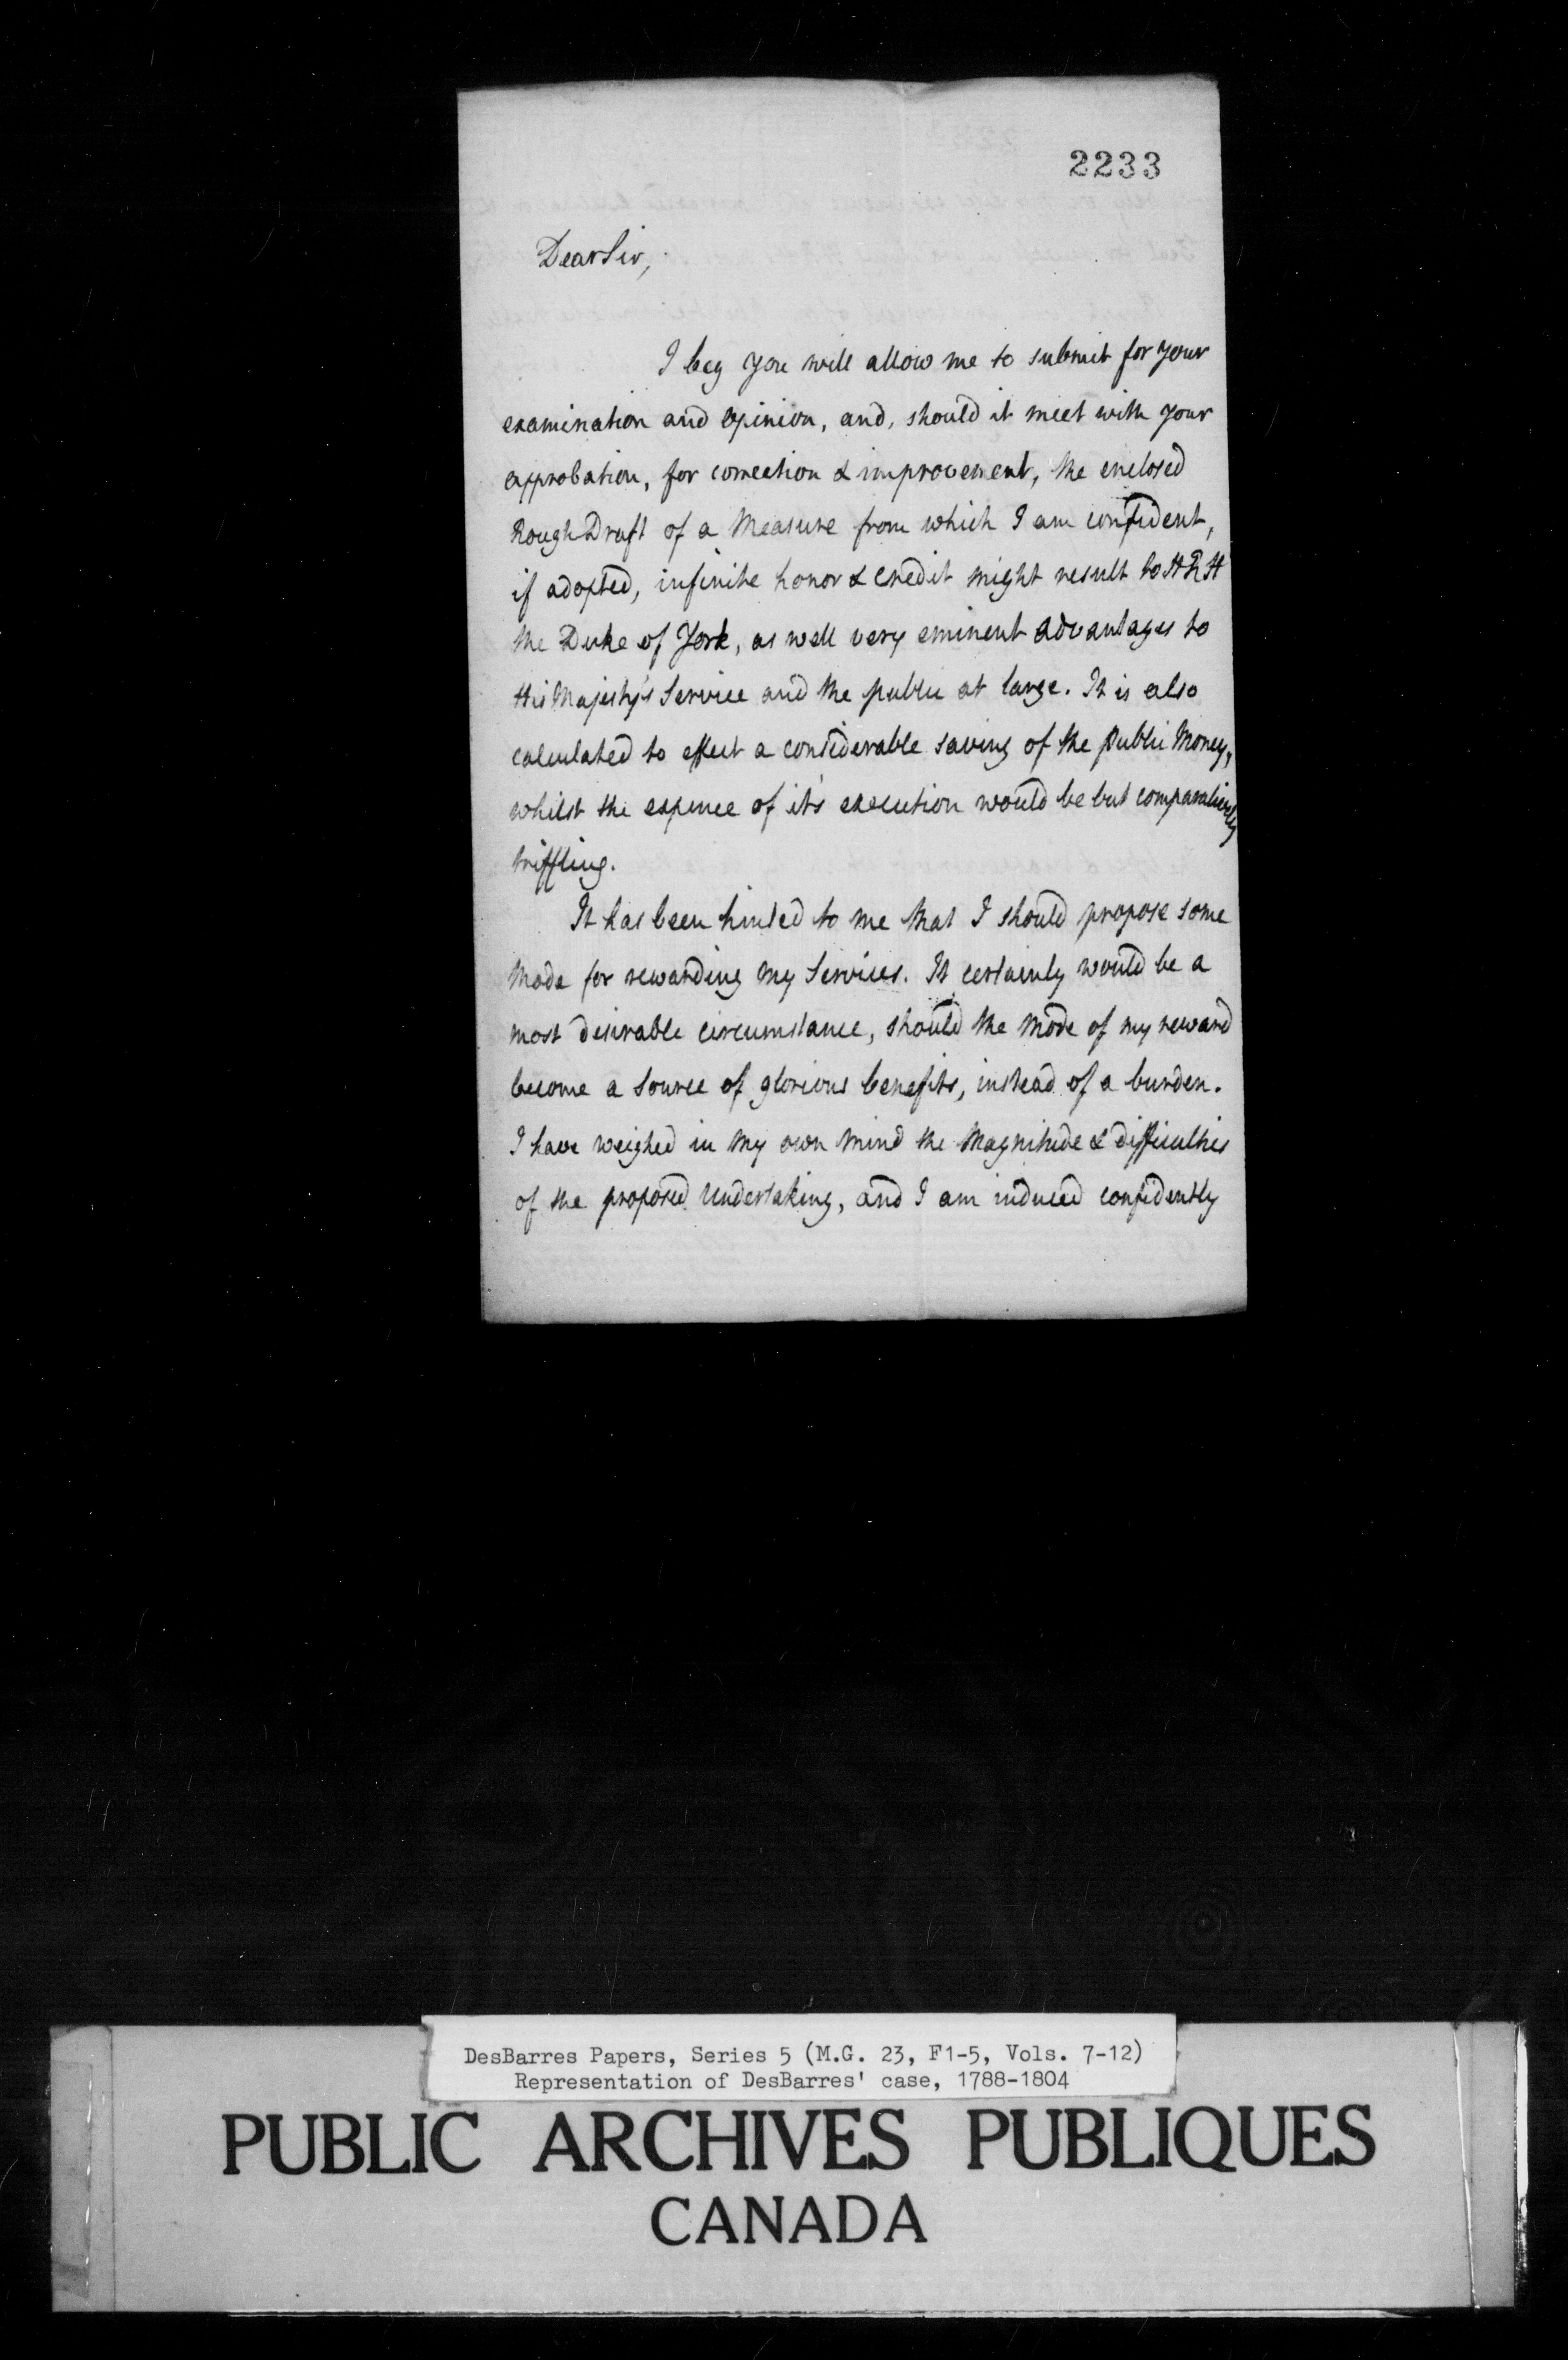 2233
Dear Sir,
I beg you will allow me to submit for your
examination and opinion, and, should it meet with your
approbation, for correction & improvement, the enclosed
Rough Draft of a Measure from which I am confident,
if adopted, infinite honor & credit might result to HRH
the Duke of York, as well very eminent advantages to
His Majesty's Service and the public at large. It is also
calculated to effect a considerable saving of the public Money,
whilst the expence of it's execution would be but comparatively
triffling.
It has been hinted to me that I should propose some
Mode for rewarding my Services. It certainly would be a
most desirable circumstance, should the Mode of my reward
become a source of glorious benefits, instead of a burden.
I have weighed in my own mind the Magnitude & difficulties
of the proposed Undertaking, and I am induced confidently
DesBarres Papers, Series 5 (M.G. 23, F1-5, Vols. 7-12)
Representation of DesBarres' case, 1788-1804
PUBLIC ARCHIVES PUBLIQUES
CANADA